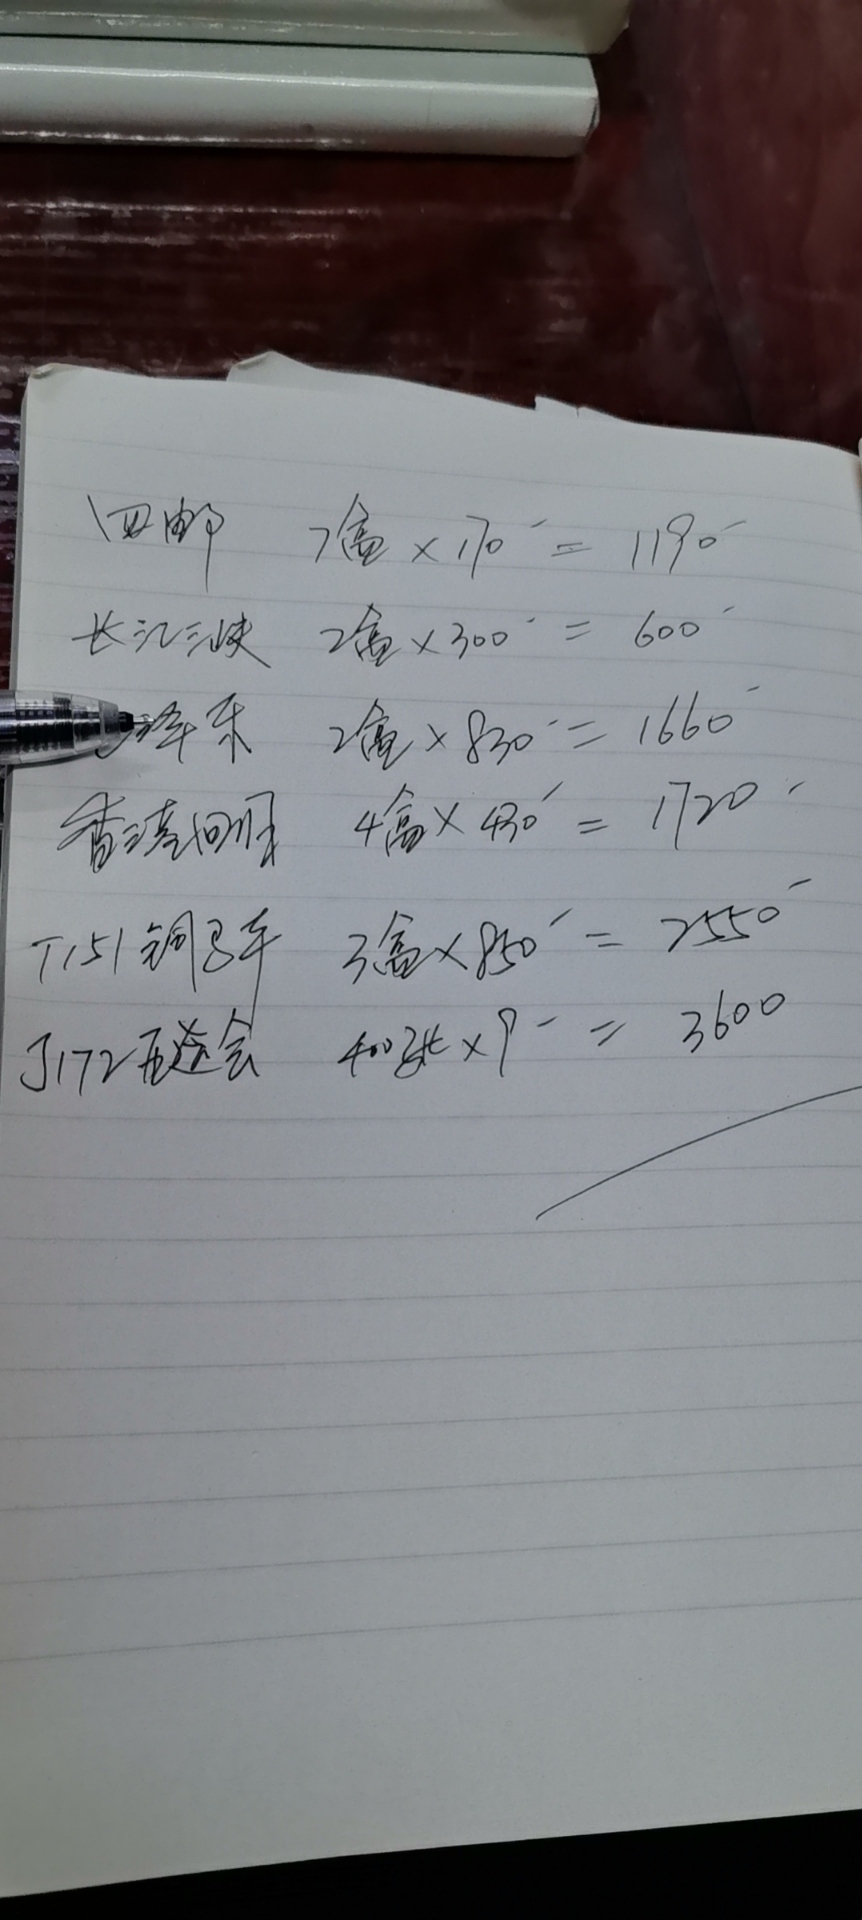 四邮 7盒×170 = 1190
长江三峡 2盒×300 = 600
泽东 2盒×830 = 1660
香港回归 4盒×430 = 1720
T151铜马车 3盒×850 = 2550
J172 会 400张×9 = 3600